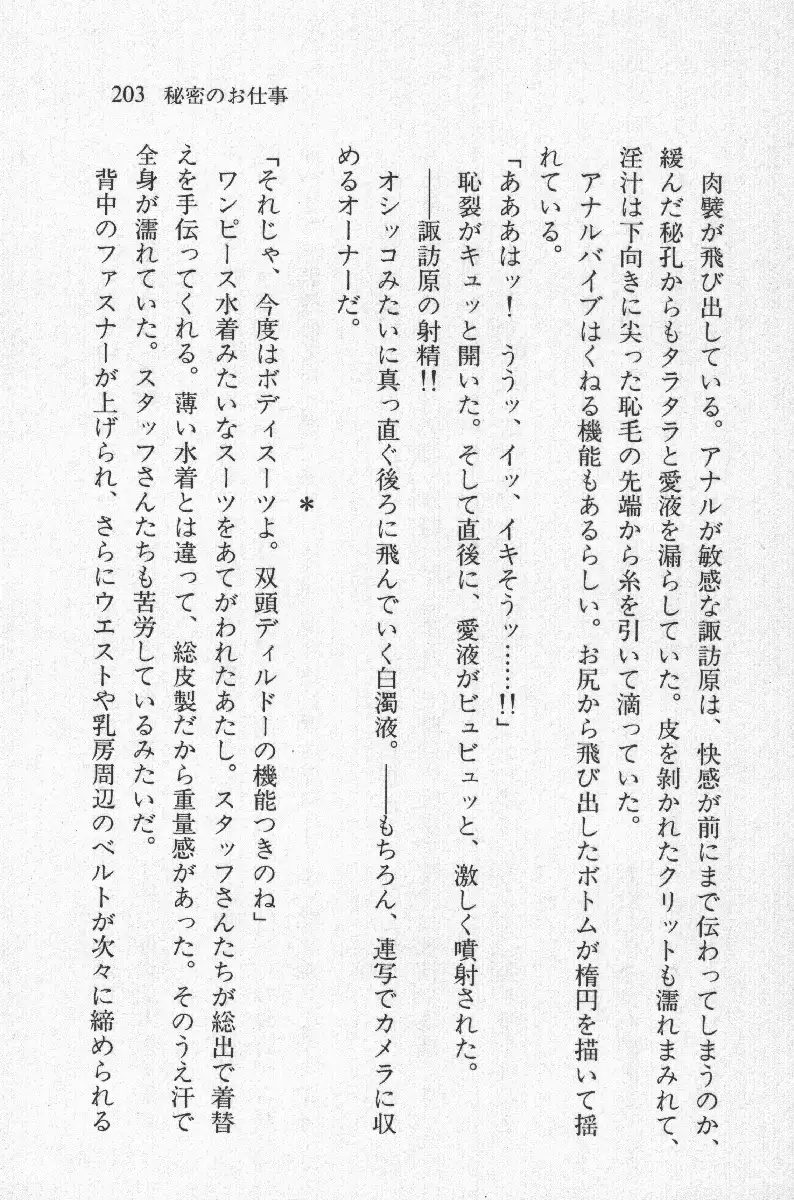 203 秘密のお仕事
肉襞が飛び出している。アナルが敏感な諏訪原は、快感が前にまで伝わってしまうのか、
緩んだ秘孔からもタラタラと愛液を漏らしていた。皮を剝かれたクリットも濡れまみれて、
淫汁は下向きに尖った恥毛の先端から糸を引いて滴っていた。
アナルバイブはくねる機能もあるらしい。お尻から飛び出したボトムが楕円を描いて揺
れている。
「あああはッ！　ううッ、イッ、イキそうッ……!!」
恥裂がキュッと開いた。そして直後に、愛液がビュビュッと、激しく噴射された。
――諏訪原の射精!!
オシッコみたいに真っ直ぐ後ろに飛んでいく白濁液。――もちろん、連写でカメラに収
めるオーナーだ。
＊
「それじゃ、今度はボディスーツよ。双頭ディルドーの機能つきのね」
ワンピース水着みたいなスーツをあてがわれたあたし。スタッフさんたちが総出で着替
えを手伝ってくれる。薄い水着とは違って、総皮製だから重量感があった。そのうえ汗で
全身が濡れていた。スタッフさんたちも苦労しているみたいだ。
背中のファスナーが上げられ、さらにウエストや乳房周辺のベルトが次々に締められる